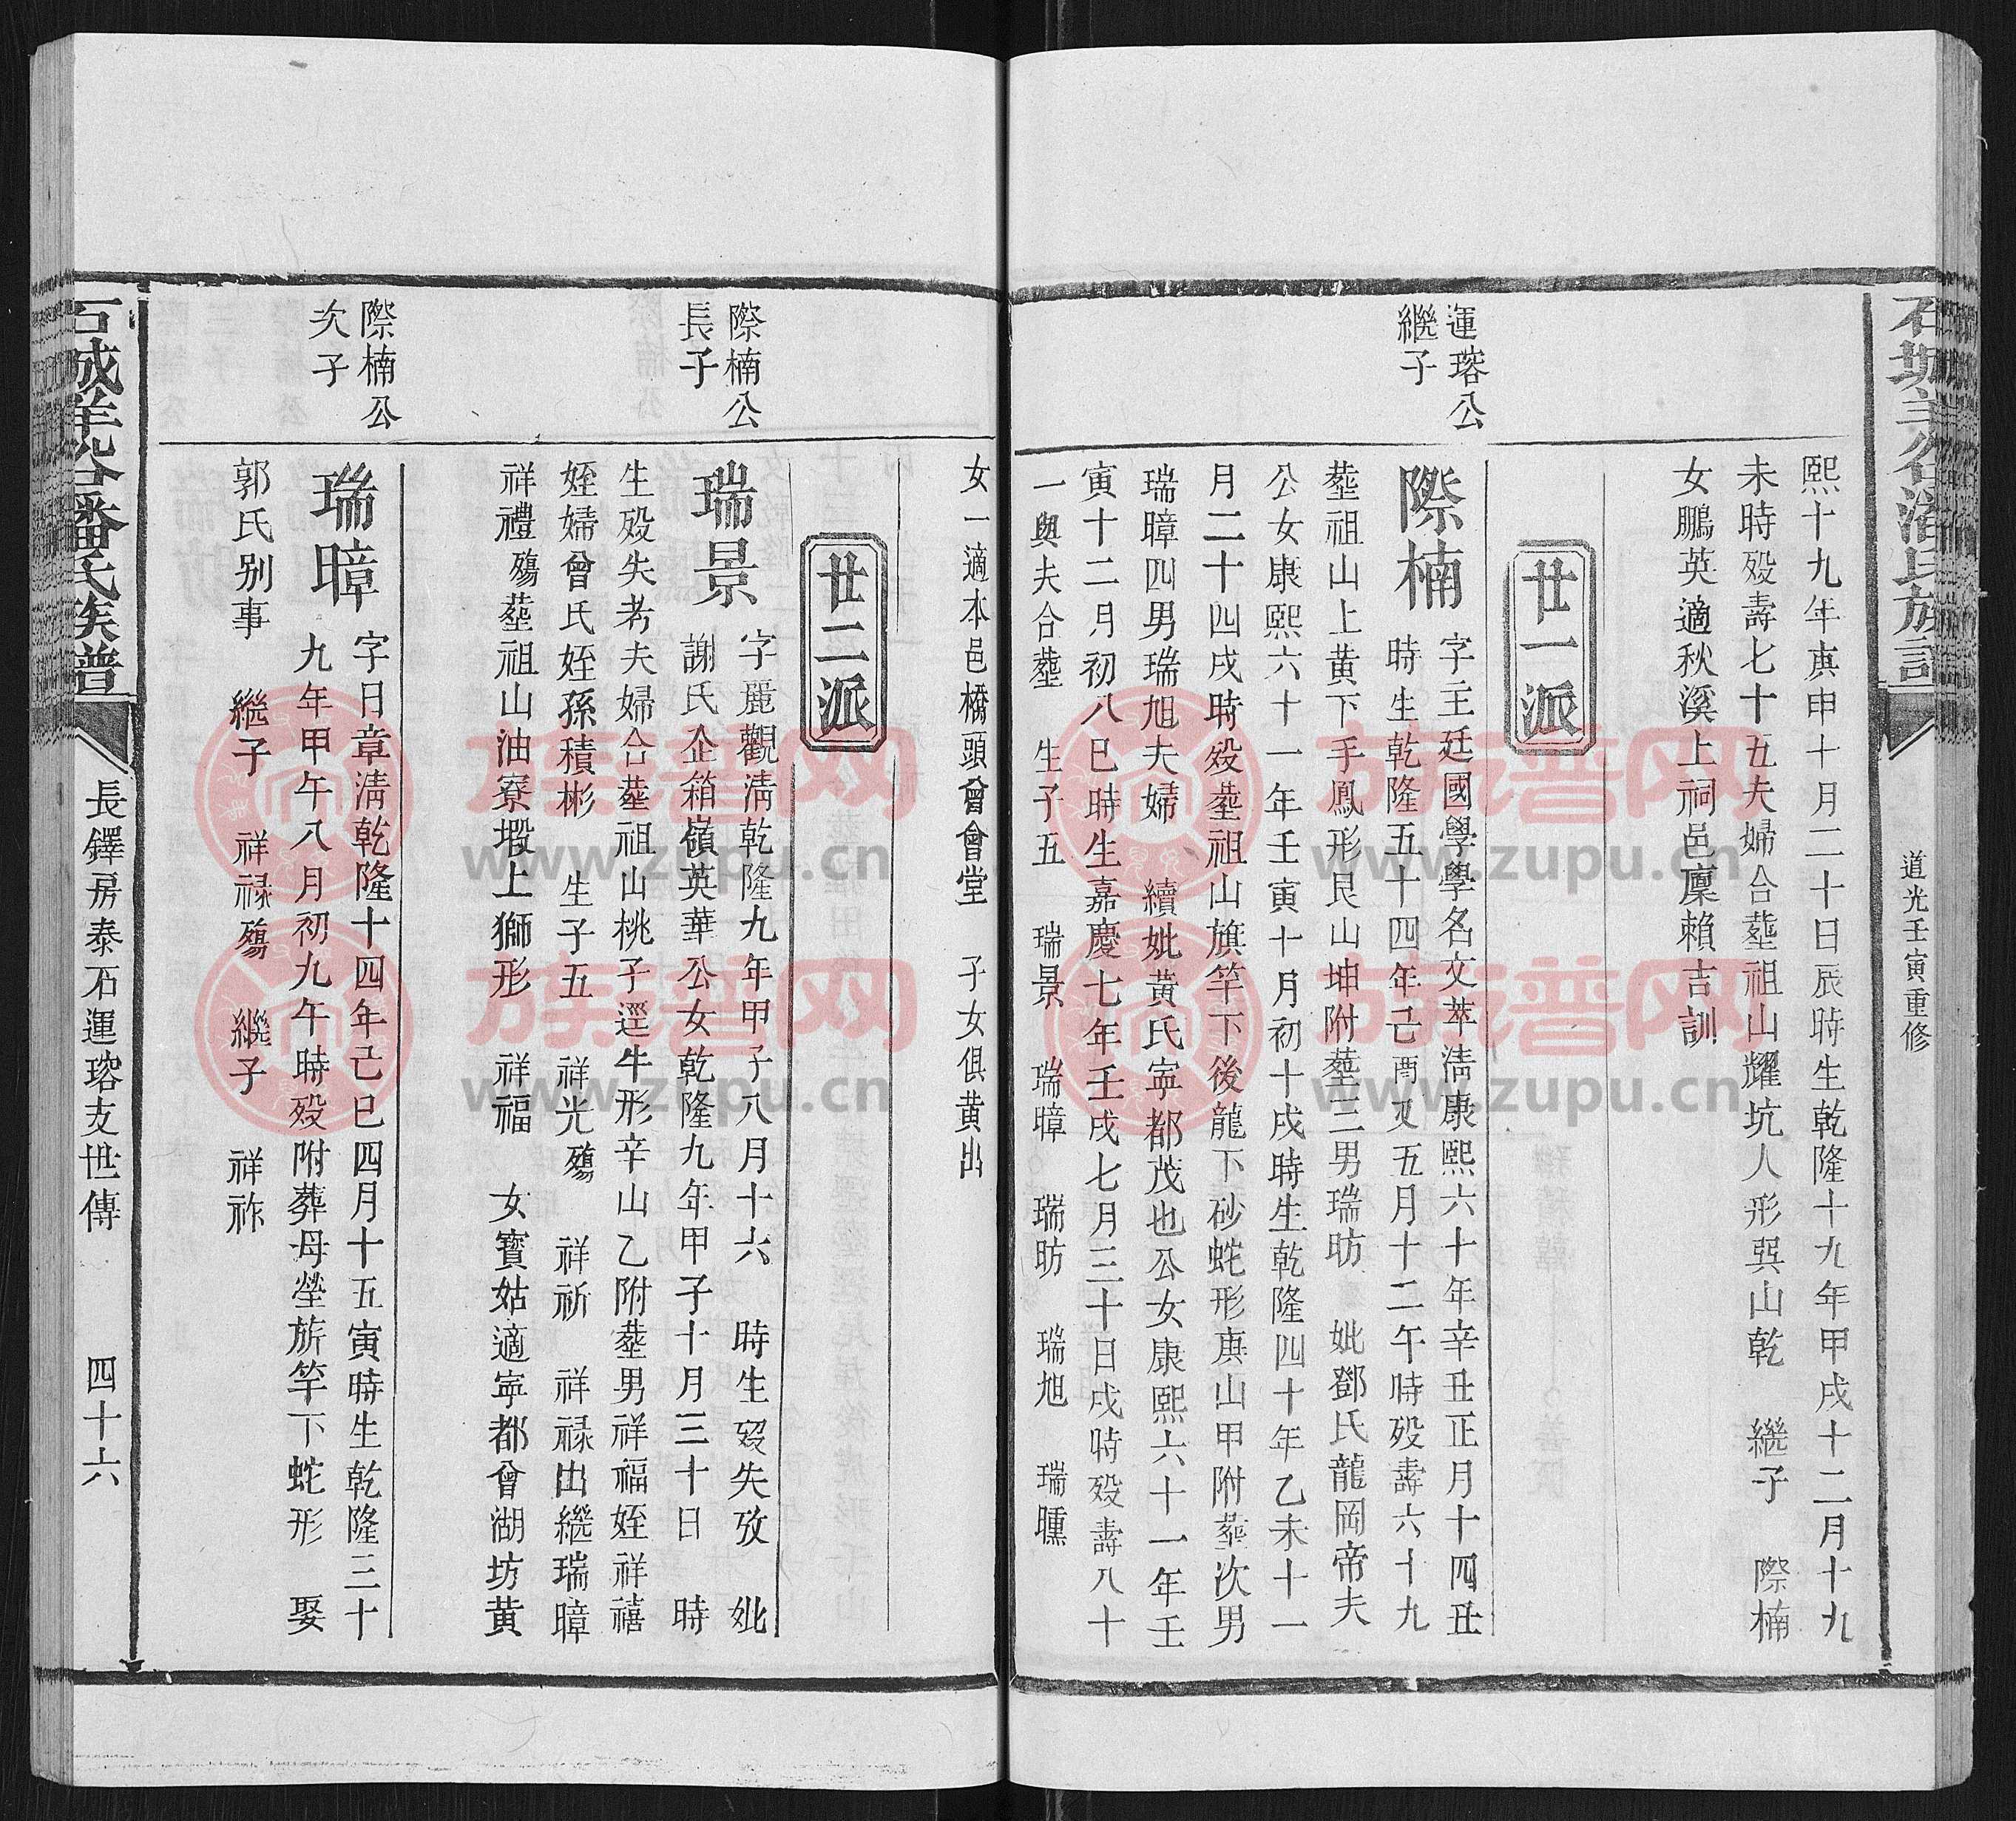 道光壬寅重修
熙十九年庚申十月二十日辰時生乾隆十九年甲戌十二月十九
未時殁壽七十五夫婦合塟祖山耀坑人形巽山乾 繼子 際楠
女鵬英適秋溪上祠邑廩賴吉訓
廿一派
運瑢公
繼子
際楠 字主廷國學學名文萃淸康熙六十年辛丑正月十四丑
時生乾隆五十四年己酉又五月十二午時殁壽六十九
塟祖山上黃下手鳳形艮山坤附塟三男瑞昉 妣鄧氏龍岡帝夫
公女康熙六十一年壬寅十月初十戌時生乾隆四十年乙未十一
月二十四戌時殁塟祖山旗竿下後龍下砂蛇形庚山甲附塟次男
瑞暲四男瑞旭夫婦 續妣黃氏寧都茂也公女康熙六十一年壬
寅十二月初八巳時生嘉慶七年壬戌七月三十日戌時殁壽八十
一與夫合塟 生子五 瑞景 瑞暲 瑞昉 瑞旭 瑞曛
女一適本邑橋頭曾會堂 子女俱黃出
廿二派
際楠公
長子
瑞景 字麗觀淸乾隆九年甲子八月十六 時生殁失攷 妣
謝氏企箱嶺英華公女乾隆九年甲子十月三十日 時
生殁失考夫婦合塟祖山桃子逕牛形辛山乙附塟男祥福姪祥禧
姪婦曾氏姪孫積彬 生子五 祥光殤 祥祈 祥祿出繼瑞暲
祥禮殤塟祖山油寮塅上獅形 祥福 女寶姑適寧都曾湖坊黃
際楠公
次子
瑞暲 字日章淸乾隆十四年己巳四月十五寅時生乾隆三十
九年甲午八月初九午時殁附葬母塋旂竿下蛇形 娶
郭氏別事 繼子 祥祿殤 繼子 祥祚
石城羊谷潘氏族譜
長鐸房泰石運瑢支世傳 四十六